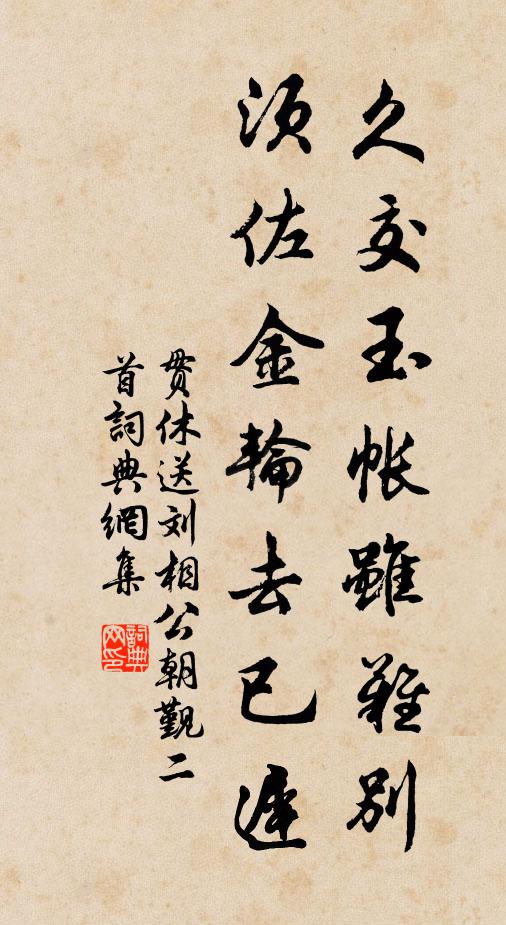 久交玉帐雖難别
须佐金輪去已遲
贯休送刘相公朝覲二
首詞典網集
詞典网印